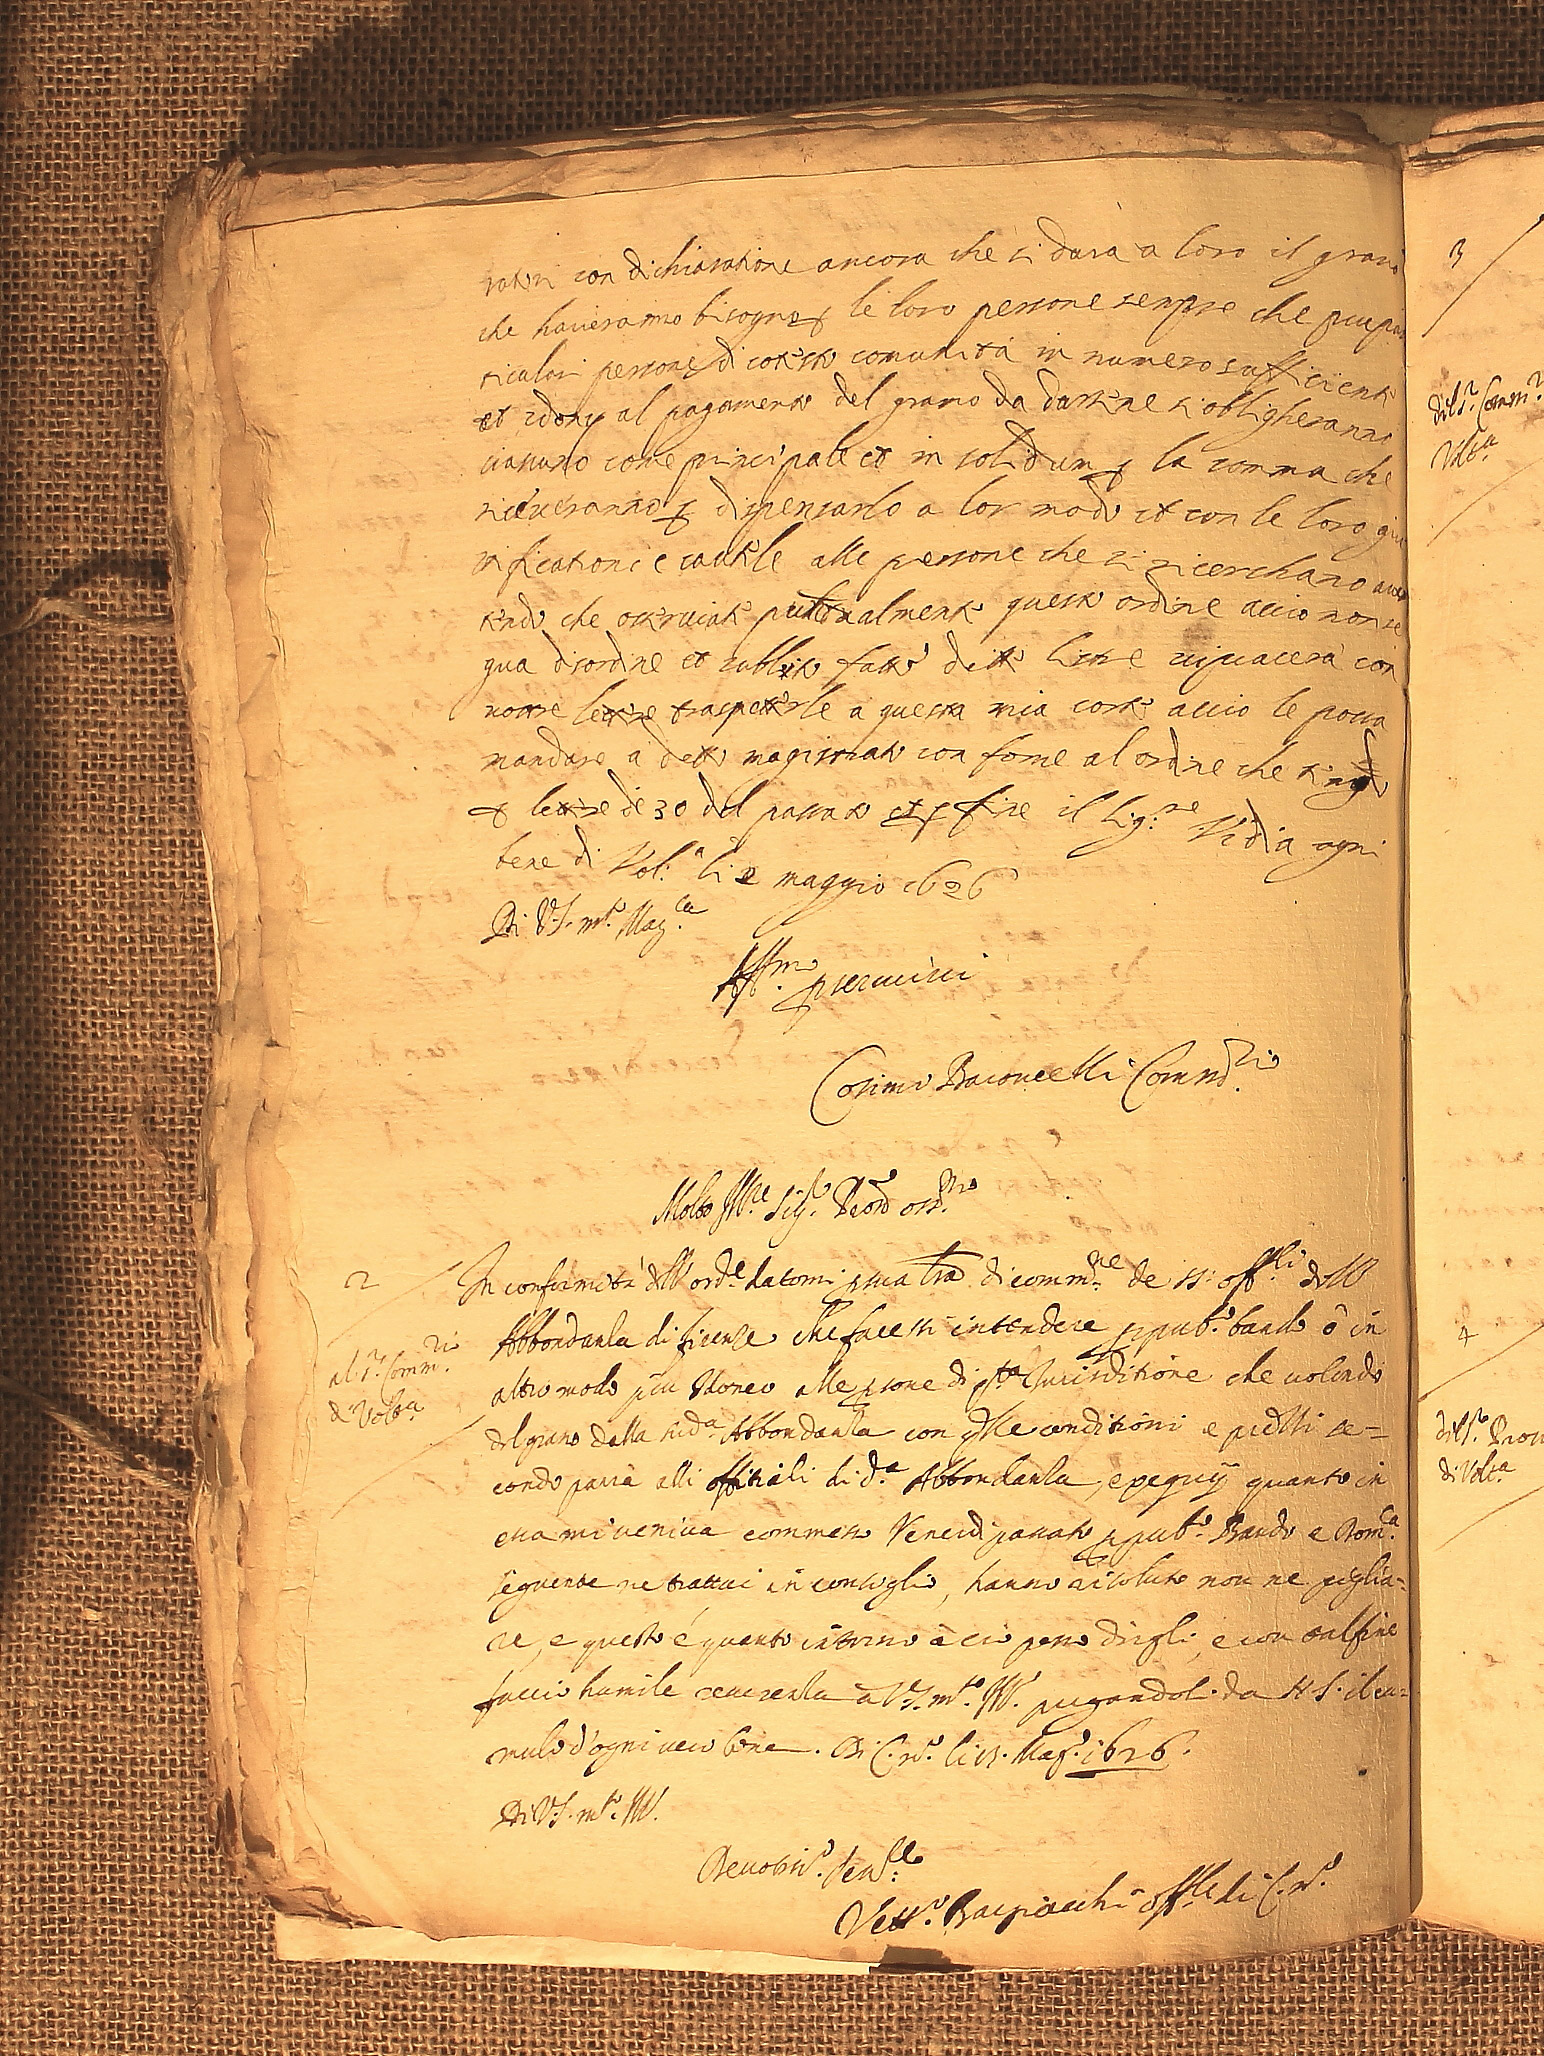 con dichiaratione ancora che si darà a loro il grano
che haveranno bisogno le loro persone sempre che piu par
ticulari persone di coteste comunità in numero sufficiente
et idonij al pagamento del grano da darsene si obligheranno
ciascuno come principale et in solidum la somma che
riceveranno dispensarlo a lor modo et con le loro giu
stificationi e cautele alle persone che si ricerchano
tendo che osserviate puntualmente questo ordine accio non se
gua disordine et subbito fatto dette lettere vi piacerà con
vostre lettere a questa mia corte accio le possa
mandare a detto magistrato con forme al ordine che tengo
lettere de 30 del passato et fine il Sig.re Vi dia ogni
bene di Vol.a li 2 maggio 1626
Di V.S. m.to Mag.ca
Aff.mo
Cosimo Baroncelli Comm.rio
Molto Ill.re Sig.r Pron oss.mo
2
In conformità dell'ord.e datomi sua lra di comm.ne de SS: off.li dell'
Abbondanza di firenze che facessi intendere pub.o bando ò in
altro modo piu Idoneo alle psone di q.ta Iurisditione che volendo
al S.r Comm.rio
di Volt.a
del grano dalla sud.a Abbondanza con q.lle conditioni e
condo parrà alli offitiali di d.a Abbondanza, quanto in
essa mi veniva commesso Venerdi passato pub.o Bando e Dom.ca
seguente ne trattai in consiglio, hanno risoluto non ne piglia=
re, e questo é quanto intorno à cio posso dirgli, e con tal fine
faccio humile reverenza a V.S. m.to Ill. pregandoli da N.S. il cu=
mulo d'ogni vero bene. Di C. li Mag.o 1626.
Di V.S. m.to Ill.
Devotiss.o Ser.re
Vett.o off.le di C.
3
del S.r Comm.r
Volt.a
4
del S.r
di Volt.a